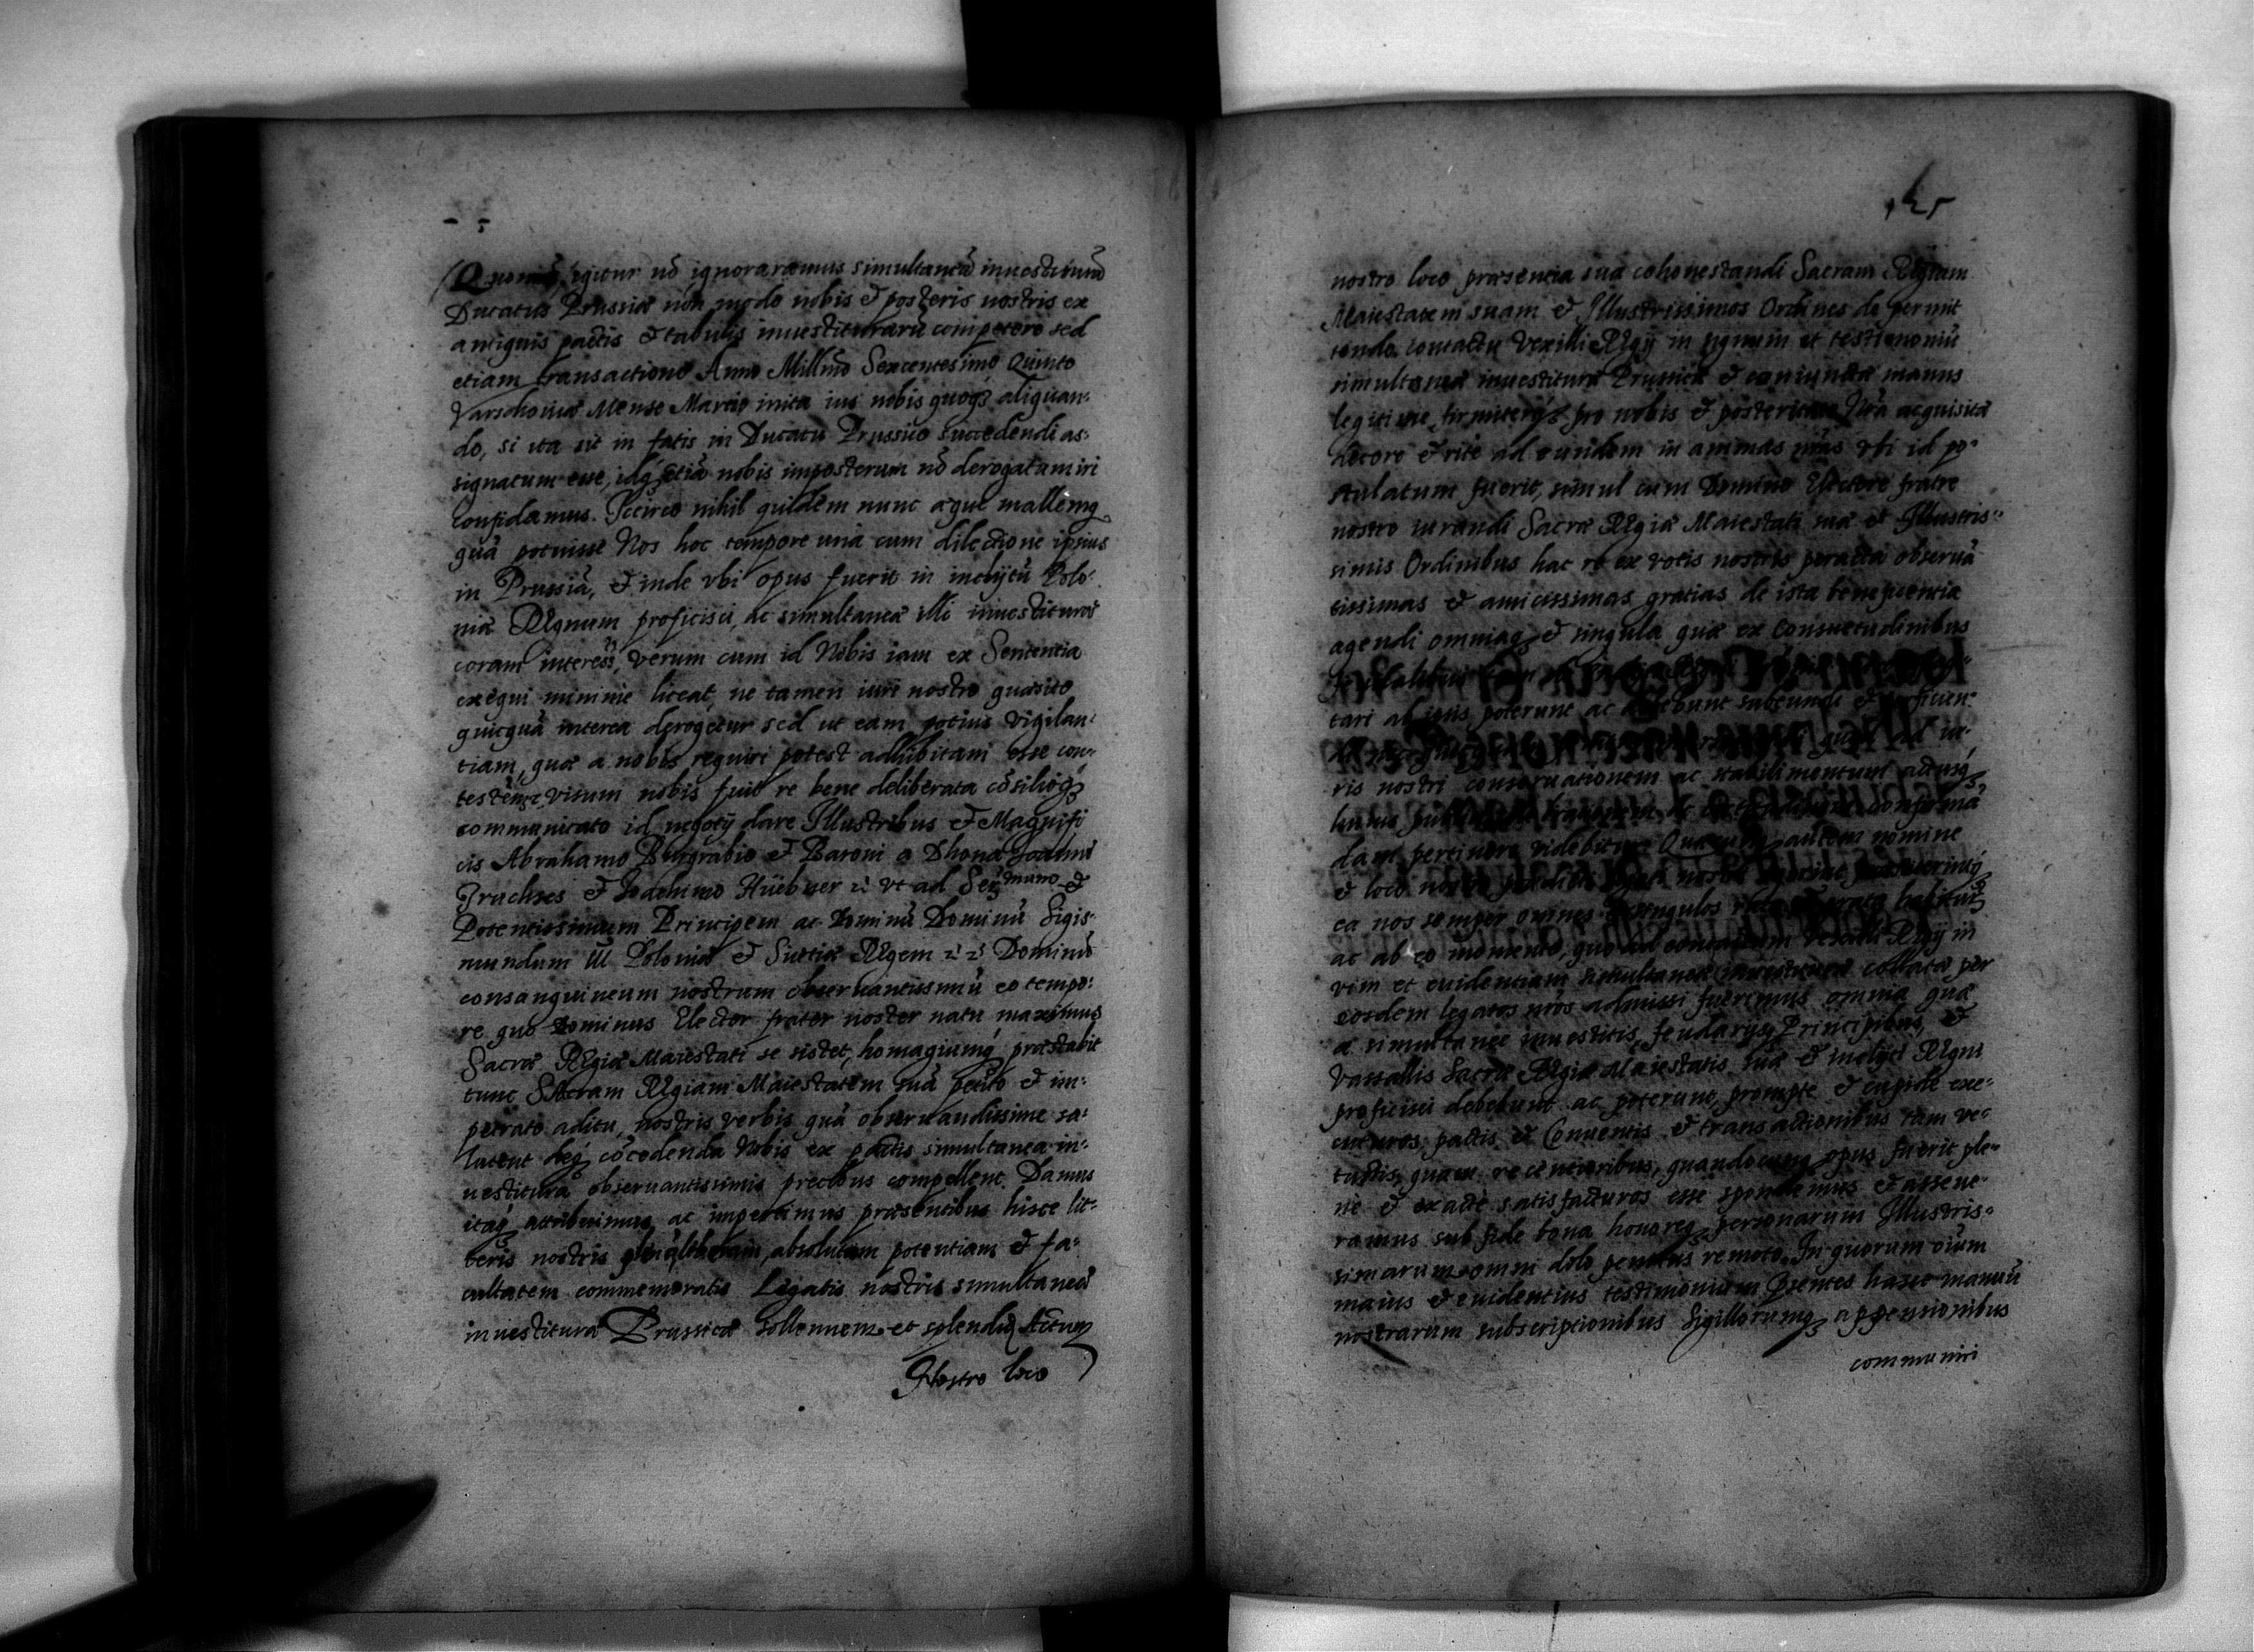 Quoniã igitur nõ ignoraremus simultaneã inuestiturã
Ducatus Prussiæ non modo nobis & posteris nostris ex
antiquis pactis & tabulis inuestiturarũ competere sed
etiam transactione Anno Millmõ Sexcentesimo Quinto
Varschouiæ Mense Martio inita ius nobis quoqȝ aliquan:
do, si ita sit in fatis in Ducatu Prussiæ succedendi as:
signatum esse, idqȝ etiã nobis imposterum nõ derogatum iri
confidamus. Iccirco nihil quidem nunc æque mallemq
quã potuisse Nos hoc tempore unà cum dilectione ipsius
in Prussiã, & inde vbi opus fuerit in inclytũ Polo:
niæ Regnum proficisci, ac simultaneæ illi inuestituræ
coram interesse, verum cum id Nobis iam ex Sententia
exequi minime liceat, ne tamen iuri nostro quæsito
quicquã interea derogetur sed ut eam potius vigilan:
tiam, quæ a nobis requiri potest adhibitam esse con:
visum nobis fuit re bene deliberata cõsilioqȝ
communicato id negotij dare Illustribus & Magnifi
cis Abrahamo Burgrabio & Baroni a Dhona Joanni
Truchses & Joachimo Hüebner ꝛc̃ vt ad Sere̅mum &
Potentissimum Principem ac Dominũ Dominũ Sigis:
mundum III Poloniæ & Suetiæ Regem ꝛc̃ ꝛc̃ Dominũ
consanguineum nostrum obseruantissimũ eo tempo:
re quo Dominus Elector frater noster natu maximus
Sacræ Regiæ Maiestati se sistet, homagiumq́ præstabit
tunc Sacram Regiam Maiestatem suã petito & im:
petrato aditu, nostris verbis quã obseruandissime sa:
lutent deq́ cõcedenda Nobis ex pactis simultanea in:
uestitura obseruantissimis precibus compellent. Damus
itaq́ attribuimus ac impertimus præsentibus hisce lit:
teris nostris absolutam potentiam & fa:
cultatem commemoratis Legatis nostris simultaneæ
inuestituræ Prussicæ sollennem et splendid Actum
Nostro loco
nostro loco præsentia sua cohonestandi Sacram Regiam
Maiestatem suam & Illustrissimos Ordines de permit
tendo contactu Vexilli Regij in signum et testimoniũ
simultaneæ inuestituræ Prussicæ & coniunctæ manus
legitime, firmiterqȝ pro nobis & posteritate Nrã acquisitæ
decore & rite ad eundem in animas nras vbi id po:
stulatum fuerit, simul cum Domino Electore fratre
nostro iurandi Sacræ Regiæ Maiestati suæ et Illustris:
simis Ordinibus hac re ex votis nostris peracta obseruã
tissimas & amicissimas gratias de ista beneficentia
agendi omniaqȝ & singula quæ ex Consuetudinibus
tari ab ipsis poterunt ac debebunt subeundi & perficien:
ris nostri conseruationem ac stabilimentum adusqȝ
dam pertinere videbitur Quæcunqȝ autem nomine
& loco nostro
ea nos semper omnes & singulos rata & grata habituros
ac ab eo momento, quo ad contactum Vexilli Regij in
vim et euidentiam simultaneæ inuestituræ collatæ per
eosdem legatos nros admissi fuerimus omnia quæ
a simultanee inuestitis, feudarijsqȝ Principibus, &
Vassallis Sacræ Regiæ Maiestatis suæ & inclyti Regni
proficisci debebunt ac poterunt, prompte & cupide exe:
cuturos pactis & Conuentis & transactionibus tam ve:
tustis, quam recentioribus, quandocunqȝ opus fuerit ple:
ne & exacte satisfacturos esse spondemus & asseue:
ramus sub fide bona honoreqȝ personarum Illustris:
simarum omni dolo penitus remoto. In quorum oium
maius & euidentius testimonium Psentes hasce manuũ
nostrarum subscriptionibus Sigillorumqȝ appensionibus
communiri